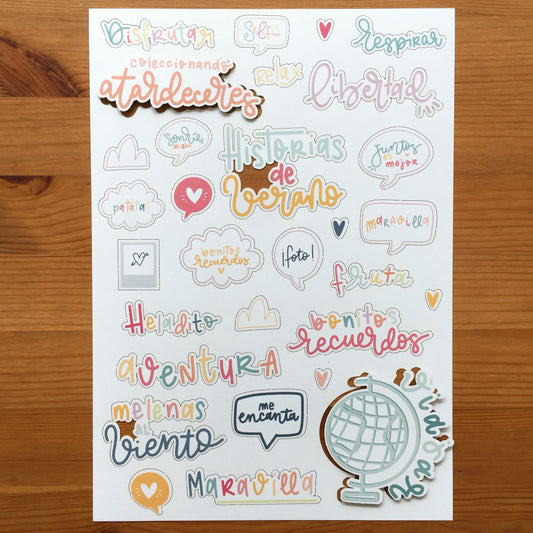 Disfrutar
Self
respirar
coleccionando
atardeceres
relax
libertad
Sonríe
mucho
Historias
de
verano
juntos
es
mejor
patata
maravilla
bonitos
recuerdos
¡foto!
fruta
Heladito
bonitos
recuerdos
aventura
melenas
al
viento
me
encanta
viajar
Maravilla